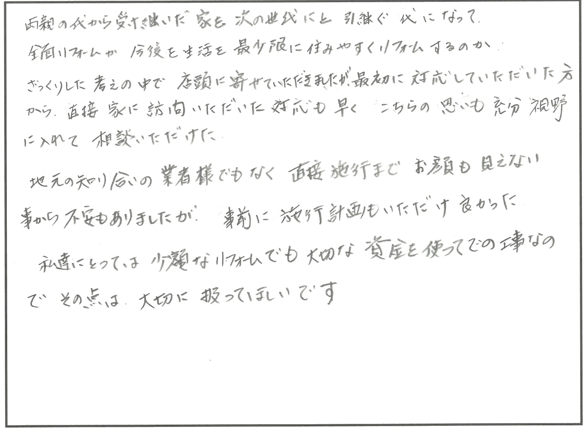 両親の代から受け継いだ 家を 次の世代にと 引継ぐ 代になって
全面リフォームか 今後を生活を 最少限に住みやすくリフォームするのか
ざっくりした 考えの中で 店頭に寄せていただきましたが、最初に 対応していただいた方
から、直接 家に 訪問いただいた 対応も 早く こちらの 思いも 充分 視野
に入れて 相談いただけた
地元の知り合いの 業者様でもなく 直接 施行まで お顔も 見えない
事から 不安もありましたが、 事前に 施行計画もいただけ 良かった
私達にとっては 少額なリフォームでも 大切な 資金を使ってでの工事なの
で その点は 大切に 扱ってほしいです